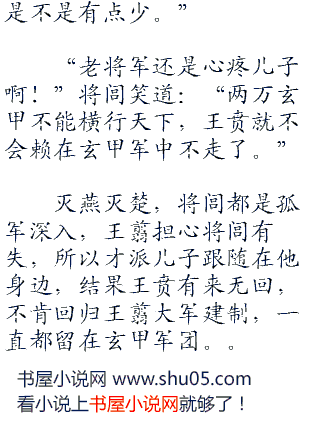 是不是有点少。”
“老将军还是心疼儿子
啊！”将闾笑道：“两万玄
甲不能横行天下，王贲就不
会赖在玄甲军中不走了。”
灭燕灭楚，将闾都是孤
军深入，王翦担心将闾有
失，所以才派儿子跟随在他
身边，结果王贲有来无回，
不肯回归王翦大军建制，一
直都留在玄甲军团。。
书屋小说网 www.shu05.com
看小说上书屋小说网就够了！